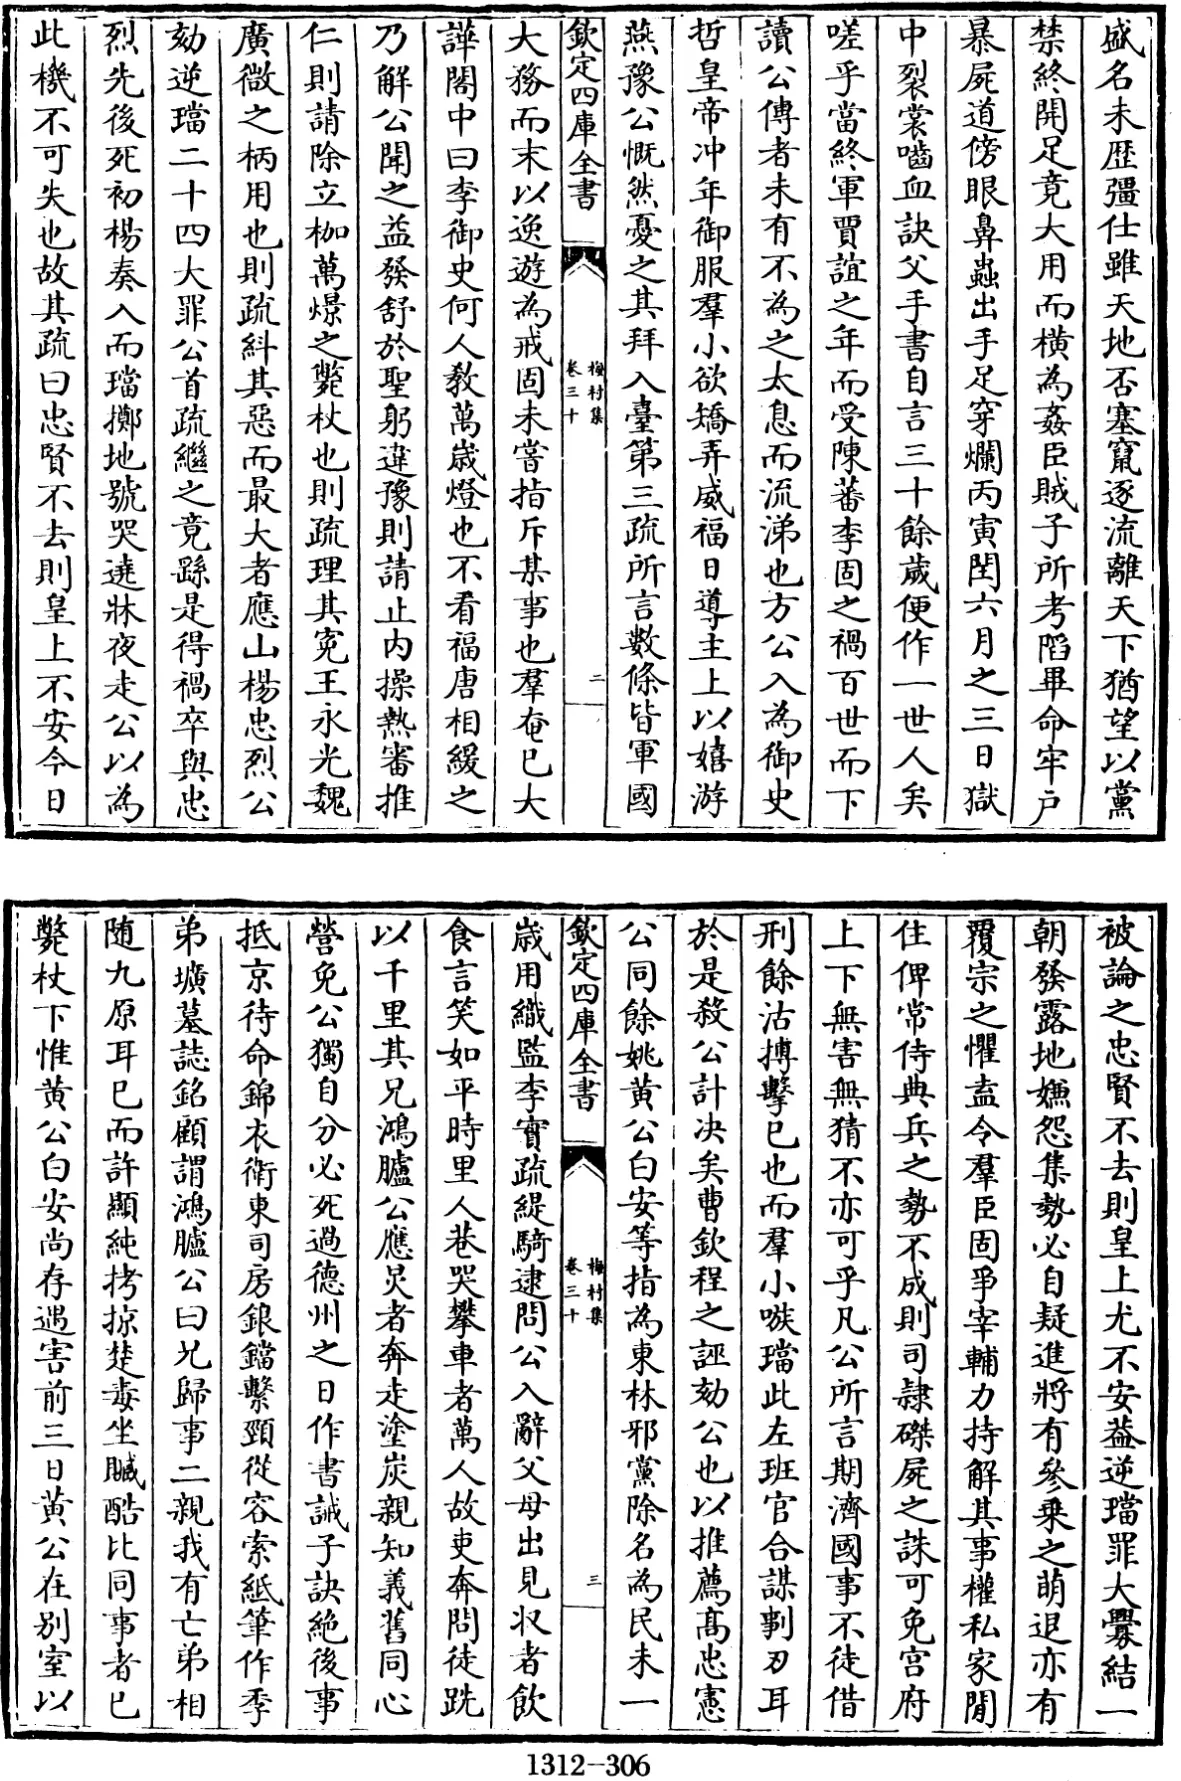 盛名未歴彊仕雖天地否塞竄逐流離天下猶望以黨
禁終開足竟大用而横為姦臣賊子所考䧟畢命牢户
暴屍道傍眼鼻蟲出手足穿爛丙寅閏六月之三日獄
中裂裳嚙血訣父手書自言三十餘歳便作一世人矣
嗟乎當終軍賈誼之年而受陳蕃李固之禍百世而下
讀公傳者未有不為之太息而流涕也方公入為御史
哲皇帝冲年御服羣小欲矯弄威福日導主上以嬉游
燕豫公慨然憂之其拜入臺第三疏所言數條皆軍國
欽定四庫全書
梅村集
卷三十
二
大務而末以逸遊為戒固未嘗指斥某事也羣奄已大
譁閣中曰李御史何人敎萬歳燈也不看福唐相緩之
乃解公聞之益發舒於聖躬違豫則請止内操熱審推
仁則請除立枷萬燝之斃杖也則疏理其寃王永光魏
廣微之柄用也則疏糾其惡而最大者應山楊忠烈公
劾逆璫二十四大罪公首疏繼之竟繇是得禍卒與忠
烈先後死初楊奏入而璫擲地號哭遶牀夜走公以為
此機不可失也故其疏曰忠賢不去則皇上不安今日
被論之忠賢不去則皇上尤不安葢逆璫罪大釁結一
朝發露地嫌怨集勢必自疑進將有參乗之萌退亦有
覆宗之懼盍令羣臣固爭宰輔力持解其事權私家閒
住俾常侍典兵之勢不成則司隷磔屍之誅可免宫府
上下無害無猜不亦可乎凡公所言期濟國事不徒借
刑餘沽搏擊已也而羣小嗾璫此左班官合謀剚刃耳
於是殺公計决矣曹欽程之誣劾公也以推薦髙忠憲
公同餘姚黄公白安等指為東林邪黨除名為民未一
欽定四庫全書
梅村集
卷三十
三
歳用織監李實疏緹騎逮問公入辭父母出見収者飲
食言笑如平時里人巷哭攀車者萬人故吏奔問徒跣
以千里其兄鴻臚公應炅者奔走塗炭親知義舊同心
營免公獨自分必死過德州之日作書誡子訣絶後事
抵京待命錦衣衛東司房銀鐺繫頸從容索紙筆作季
弟壙墓誌銘顧謂鴻臚公曰兄歸事二親我有亡弟相
随九原耳已而許顯純拷掠楚毒坐贓酷比同事者已
斃杖下惟黄公白安尚存遇害前三日黄公在别室以
1312-306